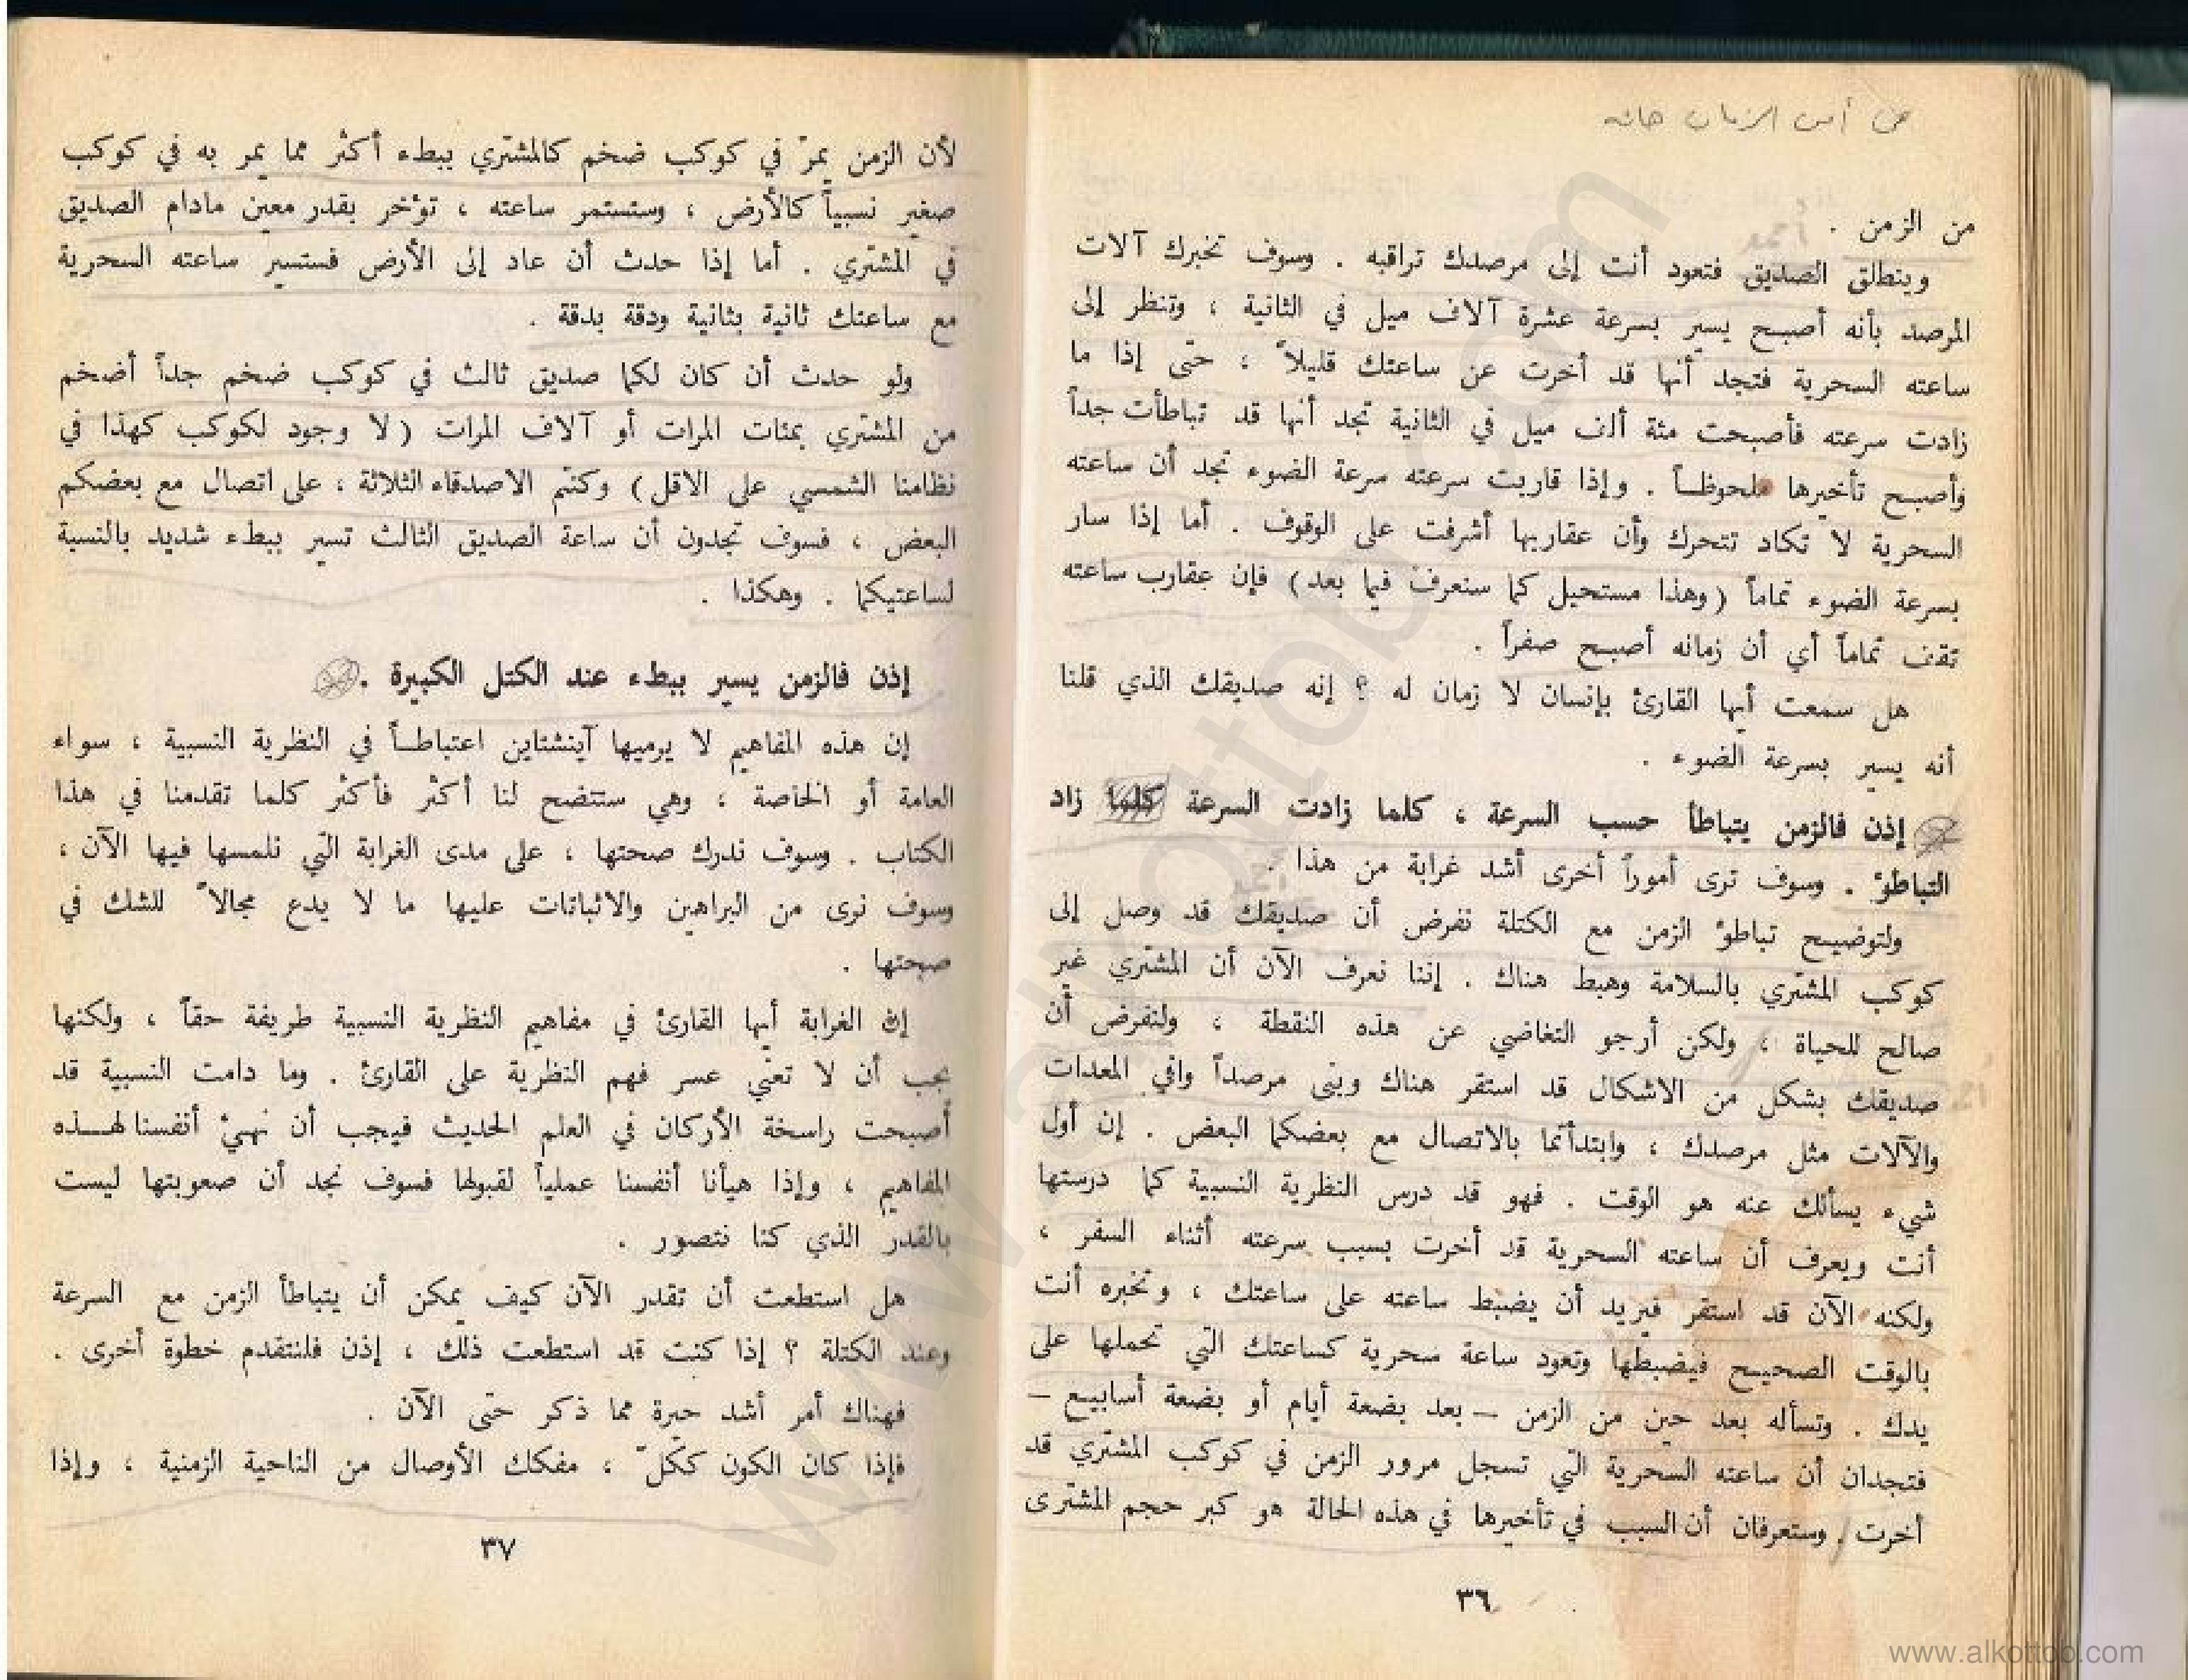 من الزمن .
وينطلق الصديق فتعود أنت إلى مرصدك تراقبه . وسوف تخبرك آلات
المرصد بأنه أصبح يسير بسرعة عشرة آلاف ميل في الثانية ، وتنظر إلى
ساعته السحرية فتجد أنها قد أخرت عن ساعتك قليلاً ؛ حتى إذا ما
زادت سرعته فأصبحت مئة ألف ميل في الثانية تجد أنها قد تباطأت جداً
وأصبح تأخيرها ملحوظاً . وإذا قاربت سرعته سرعة الضوء تجد أن ساعته
السحرية لا تكاد تتحرك وأن عقاربها أشرفت على الوقوف . أما إذا سار
بسرعة الضوء تماماً (وهذا مستحيل كما سنعرف فيما بعد) فإن عقارب ساعته
تقف تماماً أي أن زمانه أصبح صفراً .
هل سمعت أيها القارئ بإنسان لا زمان له ؟ إنه صديقك الذي قلنا
أنه يسير بسرعة الضوء .
إذن فالزمن يتباطأ حسب السرعة ، كلما زادت السرعة كلما زاد
التباطؤ . وسوف ترى أموراً أخرى أشد غرابة من هذا .
ولتوضيح تباطؤ الزمن مع الكتلة نفرض أن صديقك قد وصل إلى
كوكب المشتري بالسلامة وهبط هناك . إننا نعرف الآن أن المشتري غير
صالح للحياة ، ولكن أرجو التغاضي عن هذه النقطة ، ولنفرض أن
صديقك بشكل من الاشكال قد استقر هناك وبنى مرصداً وافي المعدات
والآلات مثل مرصدك ، وابتدأتما بالاتصال مع بعضكما البعض . إن أول
شيء يسألك عنه هو الوقت . فهو قد درس النظرية النسبية كما درستها
أنت ويعرف أن ساعته السحرية قد أخرت بسبب سرعته أثناء السفر ،
ولكنه الآن قد استقر فيريد أن يضبط ساعته على ساعتك ، وتخبره أنت
بالوقت الصحيح فيضبطها وتعود ساعة سحرية كساعتك التي تحملها على
يدك . وتسأله بعد حين من الزمن – بعد بضعة أيام أو بضعة أسابيع –
فتجدان أن ساعته السحرية التي تسجل مرور الزمن في كوكب المشتري قد
أخرت . وستعرفان أن السبب في تأخيرها في هذه الحالة هو كبر حجم المشترى
٣٦
لأن الزمن يمرّ في كوكب ضخم كالمشتري ببطء أكثر مما يمر به في كوكب
صغير نسبياً كالأرض ، وستستمر ساعته ، تؤخر بقدر معين مادام الصديق
في المشتري . أما إذا حدث أن عاد إلى الأرض فستسير ساعته السحرية
مع ساعتك ثانية بثانية ودقة بدقة .
ولو حدث أن كان لكما صديق ثالث في كوكب ضخم جداً أضخم
من المشتري بمئات المرات أو آلاف المرات (لا وجود لكوكب كهذا في
نظامنا الشمسي على الاقل) وكنتم الاصدقاء الثلاثة ، على اتصال مع بعضكم
البعض ، فسوف تجدون أن ساعة الصديق الثالث تسير ببطء شديد بالنسبة
لساعتيكما . وهكذا .
إذن فالزمن يسير ببطء عند الكتل الكبيرة .
إن هذه المفاهيم لا يرميها آينشتاين اعتباطاً في النظرية النسبية ، سواء
العامة أو الخاصة ، وهي ستتضح لنا أكثر فأكثر كلما تقدمنا في هذا
الكتاب . وسوف ندرك صحتها ، على مدى الغرابة التي نلمسها فيها الآن ،
وسوف نرى من البراهين والاثباتات عليها ما لا يدع مجالاً للشك في
صحتها .
إن الغرابة أيها القارئ في مفاهيم النظرية النسبية طريفة حقاً ، ولكنها
يجب أن لا تعني عسر فهم النظرية على القارئ . وما دامت النسبية قد
أصبحت راسخة الأركان في العلم الحديث فيجب أن نهيئ أنفسنا لهذه
المفاهيم ، وإذا هيأنا أنفسنا عملياً لقبولها فسوف نجد أن صعوبتها ليست
بالقدر الذي كنا نتصور .
هل استطعت أن تقدر الآن كيف يمكن أن يتباطأ الزمن مع السرعة
وعند الكتلة ؟ إذا كنت قد استطعت ذلك ، إذن فلنتقدم خطوة أخرى .
فهناك أمر أشد حيرة مما ذكر حتى الآن .
فإذا كان الكون ككلّ ، مفكك الأوصال من الناحية الزمنية ، وإذا
٣٧
www.alkottob.com
www.alkottob.com